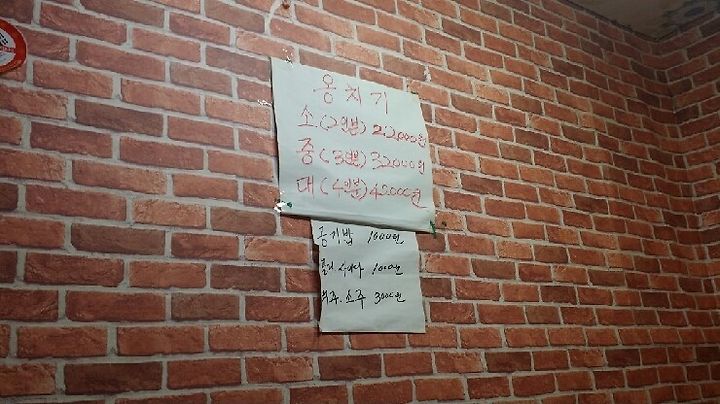 옹치기
소(2인분) 22000원
중(3인분) 32000원
대(4인분) 42000원
공기밥 1000원
1000원
맥주.소주 3000원